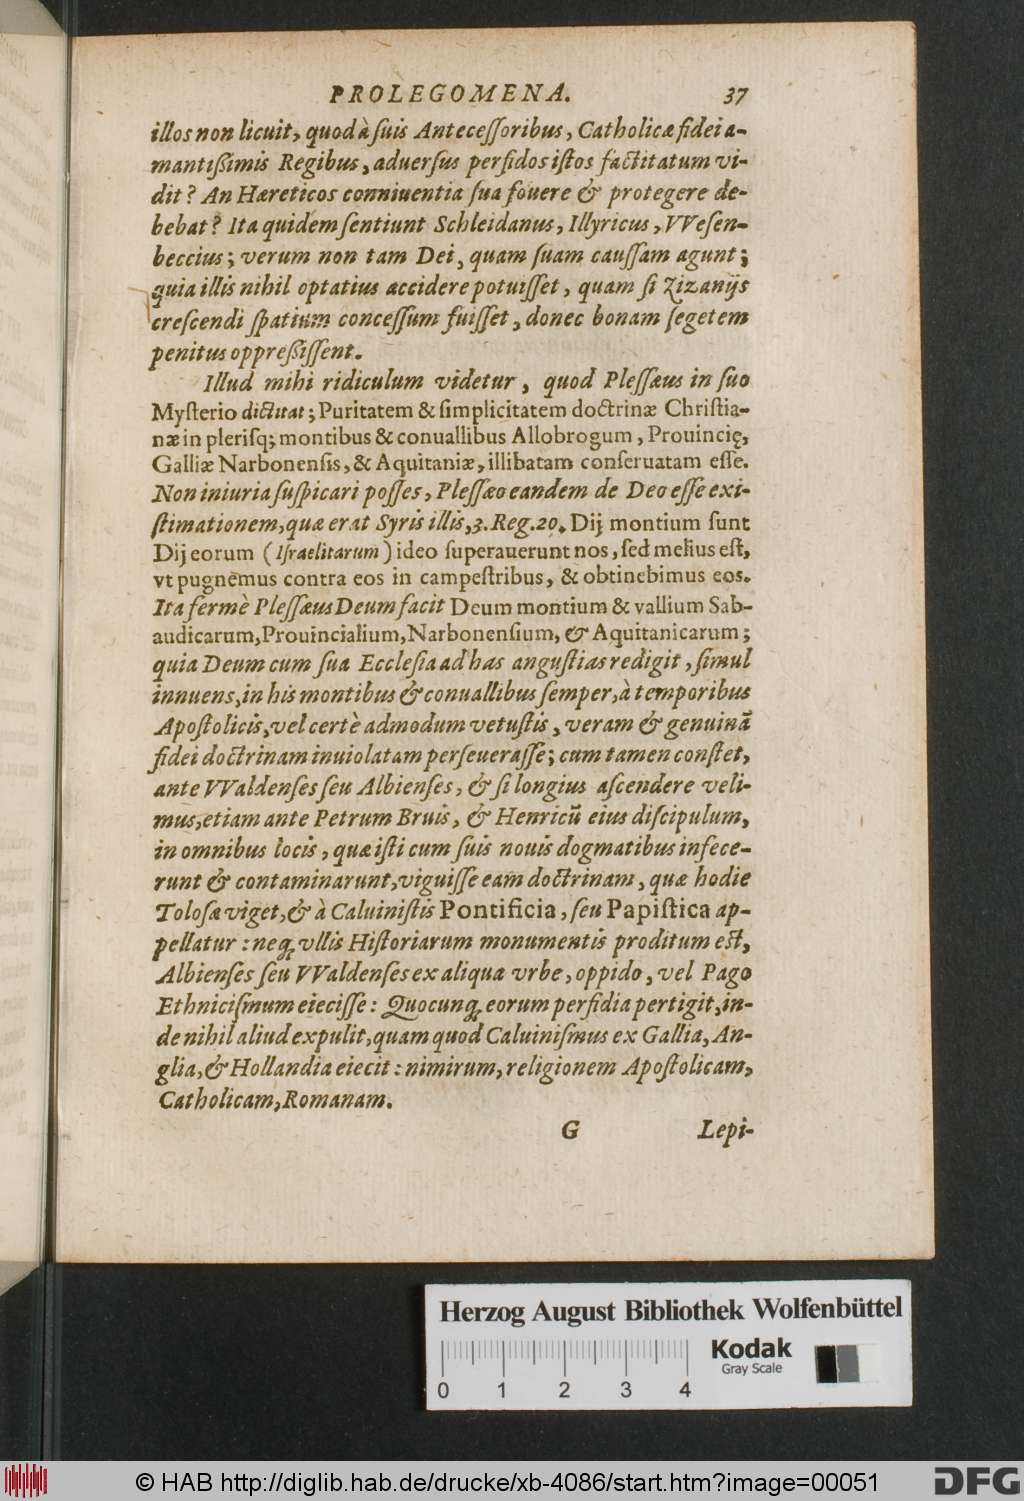 PROLEGOMENA. 37
illos non licuit, quod à ſuis Anteceſſoribus, Catholicæ fidei a-
mantißimis Regibus, aduerſus perfidos iſtos factitatum vi-
dit? An Hæreticos conniuentia ſua fouere & protegere de-
bebat? Ita quidem ſentiunt Schleidanus, Illyricus, VVeſen-
beccius; verum non tam Dei, quam ſuam cauſſam agunt;
quia illis nihil optatius accidere potuiſſet, quam ſi Zizanijs
creſcendi ſpatium conceſſum fuiſſet, donec bonam ſegetem
penitus oppreßiſſent.
Illud mihi ridiculum videtur, quod Pleſſæus in ſuo
Myſterio dictitat; Puritatem & ſimplicitatem doctrinæ Chriſtia-
næ in pleriſq; montibus & conuallibus Allobrogum, Prouincię,
Galliæ Narbonenſis, & Aquitaniæ, illibatam conſeruatam eſſe.
Non iniuria ſuſpicari poſſes, Pleſſæo eandem de Deo eſſe exi-
ſtimationem, quæ erat Syris illis, 3. Reg. 20. Dij montium ſunt
Dij eorum (Iſraelitarum) ideo ſuperauerunt nos, ſed melius eſt,
vt pugnēmus contra eos in campeſtribus, & obtinebimus eos.
Ita fermè Pleſſæus Deum facit Deum montium & vallium Sab-
audicarum, Prouincialium, Narbonenſium, & Aquitanicarum;
quia Deum cum ſua Eccleſia ad has anguſtias redigit, ſimul
innuens, in his montibus & conuallibus ſemper, à temporibus
Apoſtolicis, vel certè admodum vetuſtis, veram & genuinā
fidei doctrinam inuiolatam perſeueraſſe; cum tamen conſtet,
ante VValdenſes ſeu Albienſes, & ſi longius aſcendere veli-
mus, etiam ante Petrum Bruis, & Henricū eius diſcipulum,
in omnibus locis, quæ iſti cum ſuis nouis dogmatibus infece-
runt & contaminarunt, viguiſſe eam doctrinam, quæ hodie
Toloſæ viget, & à Caluiniſtis Pontificia, ſeu Papiſtica ap-
pellatur: neq; vllis Hiſtoriarum monumentis proditum eſt,
Albienſes ſeu VValdenſes ex aliqua vrbe, oppido, vel Pago
Ethniciſmum eieciſſe: Quocunq; eorum perfidia pertigit, in-
de nihil aliud expulit, quam quod Caluiniſmus ex Gallia, An-
glia, & Hollandia eiecit: nimirum, religionem Apoſtolicam,
Catholicam, Romanam.
G Lepi-
Herzog August Bibliothek Wolfenbüttel
Kodak
Gray Scale
0 1 2 3 4
© HAB http://diglib.hab.de/drucke/xb-4086/start.htm?image=00051
DFG